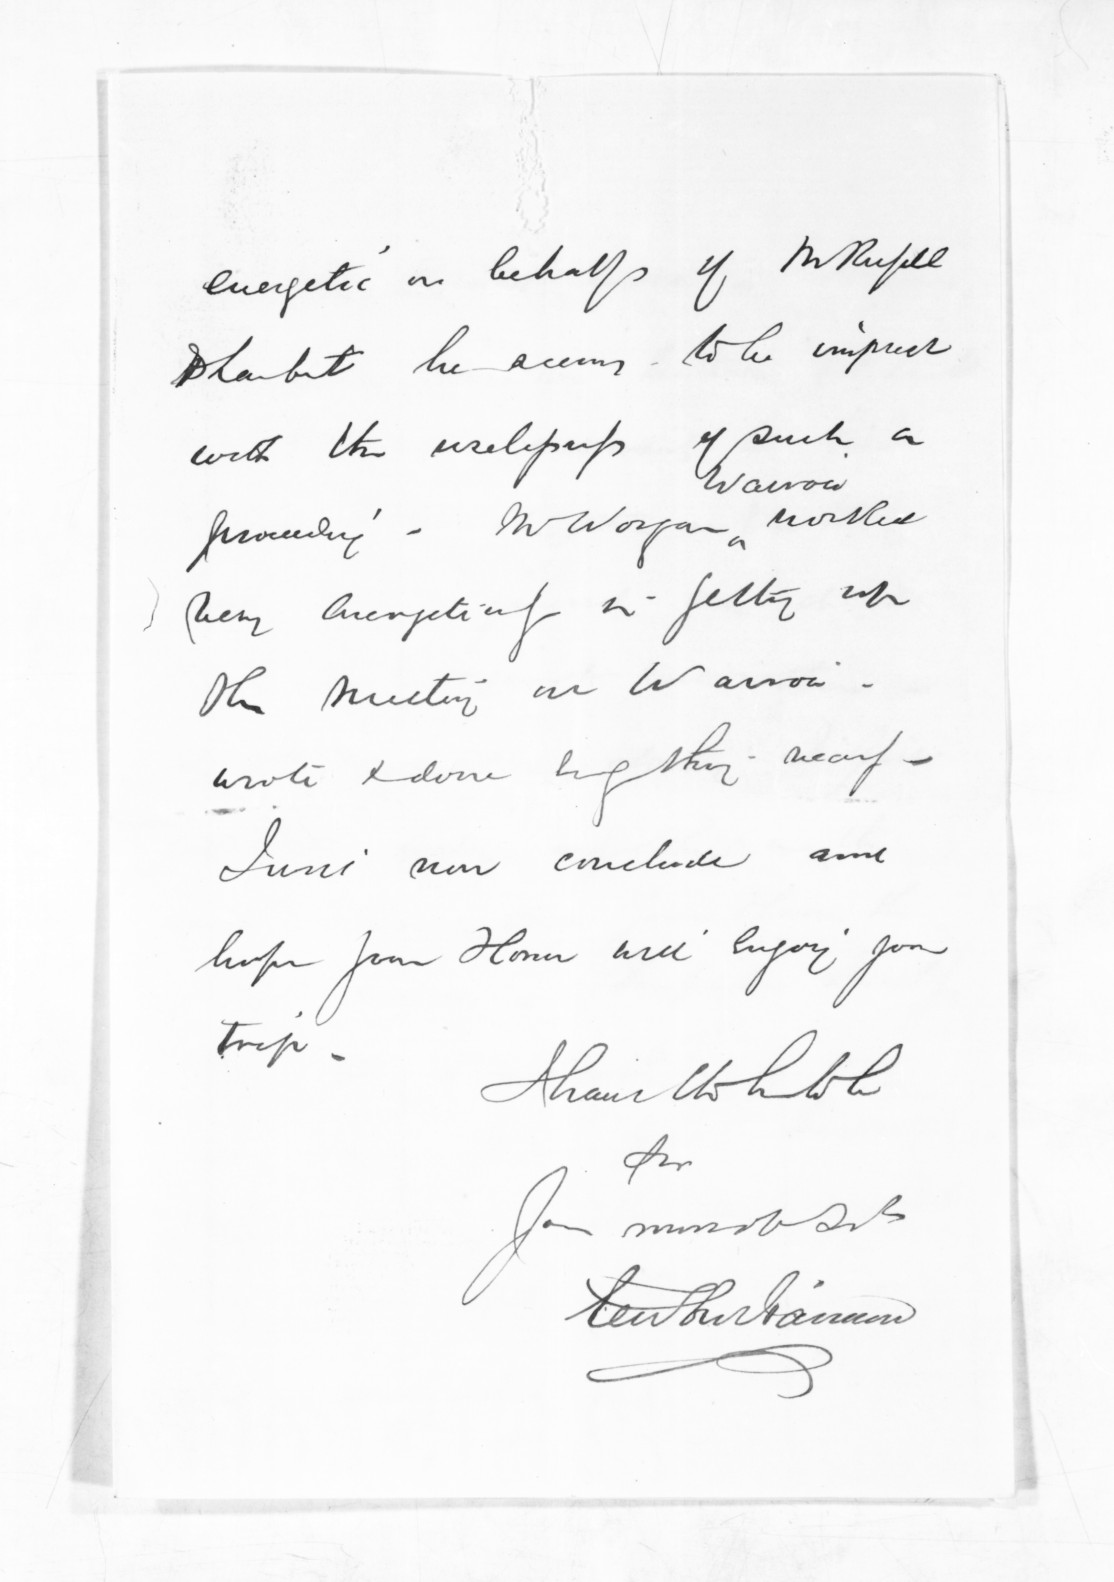 energetic on behalf of Mr Russell
he seems to be imprest
with the uselessness of such a
proceeding - Mr Worgan
Wairoa
worked
very energeticaly in getting up
the meeting in Wairoa -
wrote & done nearly -
I must now conclude and
hope your Honor will enjoy your
trip -
I have the honor to be
Sir
Your most obt Svt